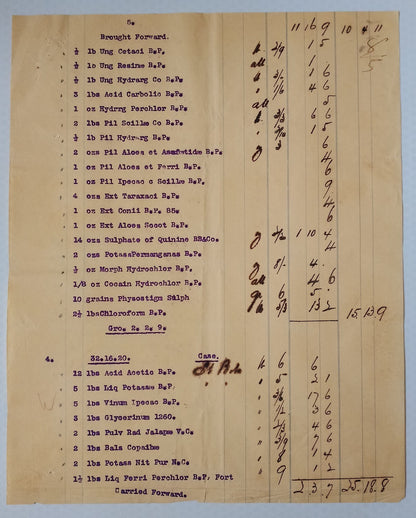 5.
11 16 9 10 4 11
Brought Forward.
" ½ lb Ung Cetaci B.P. lb 2/9 1 5
" ½ lb Ung Resine B.P. all 1
" ½ lb Ung Hydrarg Co B.P. 1 6
" 3 lbs Acid Carbolic B.P. " 1/6 4 6
" 1 oz Hydrrg Perchlor B.P. all 5
" 2 lbs Pil Scillæ Co B.P. 3/3 6 6
" ½ lb Pil Hydrarg B.P. 1 5
" 2 ozs Pil Aloes et Assafœtidæ B.P. 3 6
" 1 oz Pil Aloes et Ferri B.P. 4
" 1 oz Pil Ipecac c Scillæ B.P. 6
" 4 ozs Ext Taraxaci B.P. 9
" 1 oz Ext Conii B.P. 85. 4
" 1 oz Ext Aloes Socot B.P. 6
" 14 ozs Sulphate of Quinine BS&Co. 1 10 4
" 2 ozs PotassPermanganas B.P. 4
" ½ oz Morph Hydrochlor B.P. 8/- 4
" 1/8 oz Cocain Hydrochlor B.P. all 4 6
" 10 grains Physostigm Sulph gr 6 5
" 2½ lbsChloroform B.P. lb 5/3 13 2 15.13 9
Gro. 2. 2. 9.
4. 32.16.20. Case.
12 lbs Acid Acetic B.P. lb 6 6
" 5 lbs Liq Potassæ B.P. " 5 2 1
" 5 lbs Vinum Ipecac B.P. 3/6 17 6
" 3 lbs Glycerinum 1260. 1/2 3 6
" 2 lbs Pulv Rad Jalapæ V.C. 2/3 4 6
" 2 lbs Bals Copaibæ 3/9 7 6
" 2 lbs Potass Nit Pur N.C. 8 1 4
" 1½ lbs Liq Ferri Perchlor B.P. Fort 9 1 2
Carried Forward. 2 3 7 25.18.8